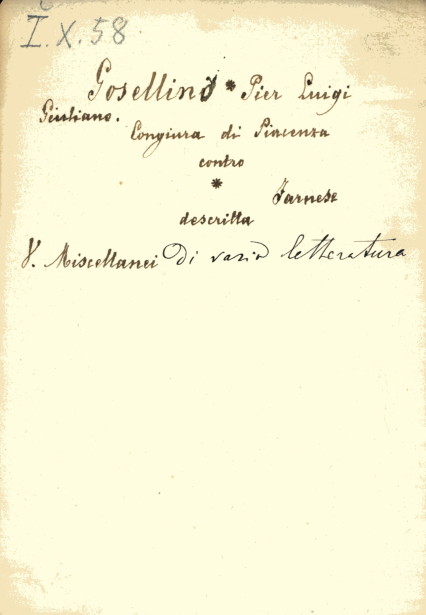 I.X.58
Gosellino * Pier Luigi
Giuliano.
Congiura di Piacenza
contro
*
Farnese
descritta
V. Miscellanei di varia letteratura